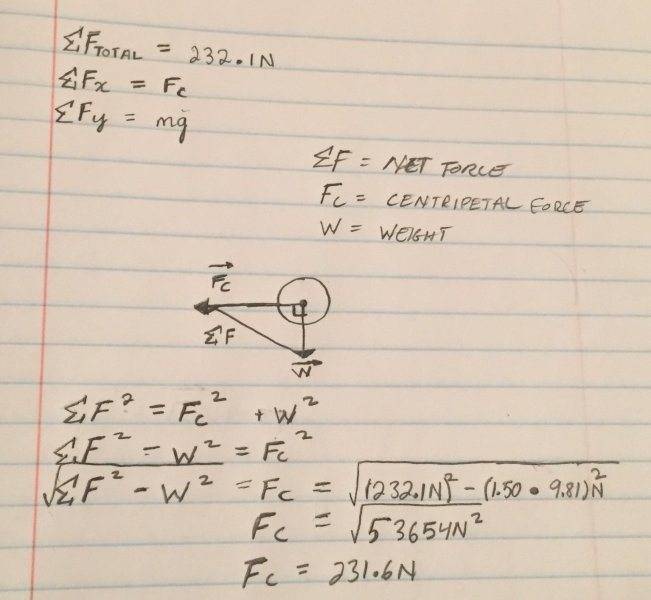 ΣF_TOTAL = 232.1N
ΣFx = Fc
ΣFy = mg
ΣF = NET FORCE
Fc = CENTRIPETAL FORCE
W = WEIGHT
Fc
ΣF
W
ΣF² = Fc² + W²
ΣF² - W² = Fc²
√(ΣF² - W²) = Fc = √((232.1N)² - (1.50 • 9.81)N²)
Fc = √(53654N²)
Fc = 231.6N